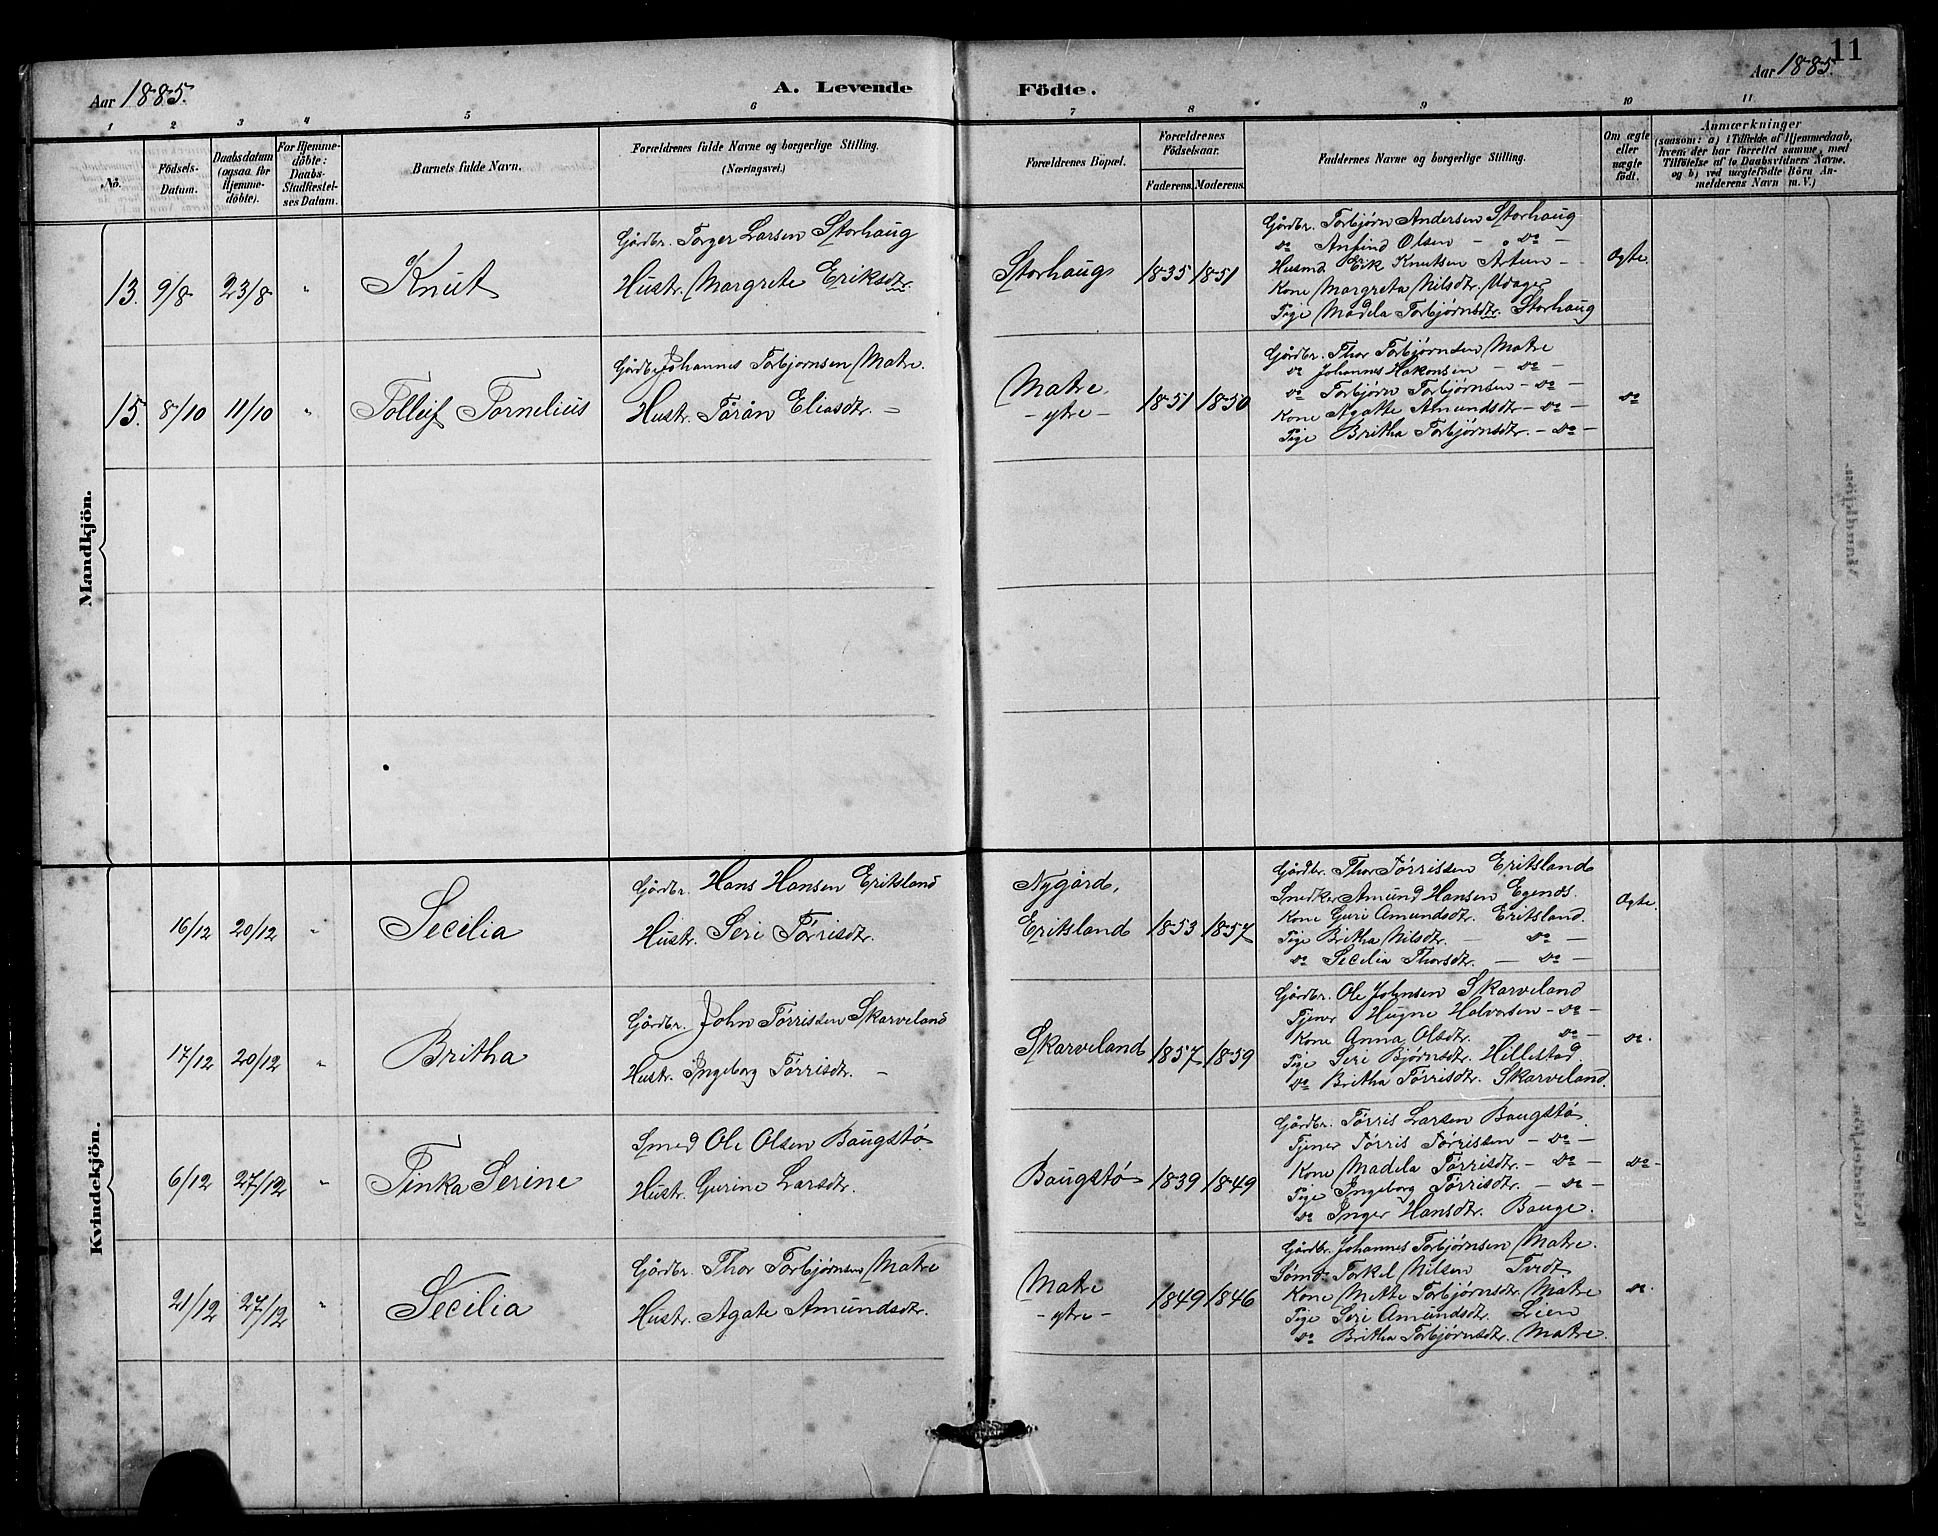 11
Aar 1885.
A. Levende Födte.
Aar 1885.
1 2 3 4 5 6 7 8 9 10 11
No.
Födsels-Datum.
Daabsdatum (ogsaa for Hjemme-döbte).
For Hjemme-döbte: Daabs-Stadfæstel-ses Datum.
Barnets fulde Navn.
Forældrenes fulde Navne og borgerlige Stilling.
(Næringsvei.)
Forældrenes Bopæl.
Forældrenes Födselsaar.
Faderens. Moderens.
Faddernes Navne og borgerlige Stilling.
Om ægte eller uægte født.
Anmærkninger
(saasom: a) i Tilfælde af Hjemmedaab,
hvem der har forrettet samme, med
Tilföielse af to Daabsvidners Navne,
og b) ved uægtefödte Börn An-
melderens Navn m. V.)
Mandkjön.
13. 9/8 23/8 " Knut
Gårdbr. Torger Larsen Storhaug
Hustr. Margrete Eriksdtr.
Storhaug 1835 1851
Gårdbr. Torbjørn Andersen Storhaug
do Anfind Olsen - " do -
Husmd Erik Knutsen Artun -
Kone Margreta Nilsdtr. Udager
Pige Madela Torbjørnsdtr. Storhaug
Ægte.
15. 8/10 11/10 " Tolleif Tornelius
Gårdbr. Johannes Torbjørnsen Matre.
Hustr. Tårån Eliasdtr. -
Matre
- ytre -
1851 1850
Gårdbr. Thor Torbjørnsen Matre
do Johannes Håkonsen - do -
do Torbjørn Torbjørnsen - do -
Kone Agatte Amundsdtr - do -
Pige Britha Torbjørnsdtr. - do -
do
Kvindekjön.
16/12 20/12 " Secilia
Gårdbr. Hans Hansen Eritsland
Hustr. Seri Tørrisdtr.
Nygård,
Eritsland 1853 1857
Gårdbr. Thor Tørrissen Eritsland
Snedker Amund Hansen Egends.
Kone Guri Amundsdtr. Eritsland.
Pige Britha Nilsdtr. - do -
do Secilia Thorsdtr. - do -
Ægte.
17/12 20/12 " Britha
Gårdbr. John Tørrissen Skarveland
Hustr. Ingeborg Tørrisdtr. -
Skarveland 1857 1859
Gårdbr. Ole Johnsen Skarveland
Tjener Hugne Halvorsen - do -
Kone Anna Olsdtr. do -
Pige Seri Bjørnsdtr. Hillestad.
do Britha Tørrisdtr. Skarveland.
do.
6/12 27/12 " Tinka Serine
Smed Ole Olsen Baugstø
Hustr. Gurine Larsdtr.
Baugstø 1839 1849
Gårdbr. Tørris Larsen Baugstø
Tjener Tørris Tørrissen - do -
Kone Madela Tørrisdtr. - do -
Pige Ingeborg Tørrisdtr. - do -
do Inger Hansdtr. Bauge.
do -
21/12 27/12 " Secilia
Gårdbr. Thor Torbjørnsen Matre
Hustr. Agate Amundsdtr.
Matre
- ytre -
1849 1846
Gårdbr. Johannes Torbjørnsen Matre.
Sømd Torkel Nilsen Tvidt
Kone Mette Torbjørnsdtr. Matre
Pige Seri Amundsdtr. Lien
do Britha Torbjørnsdtr. Matre.
do.